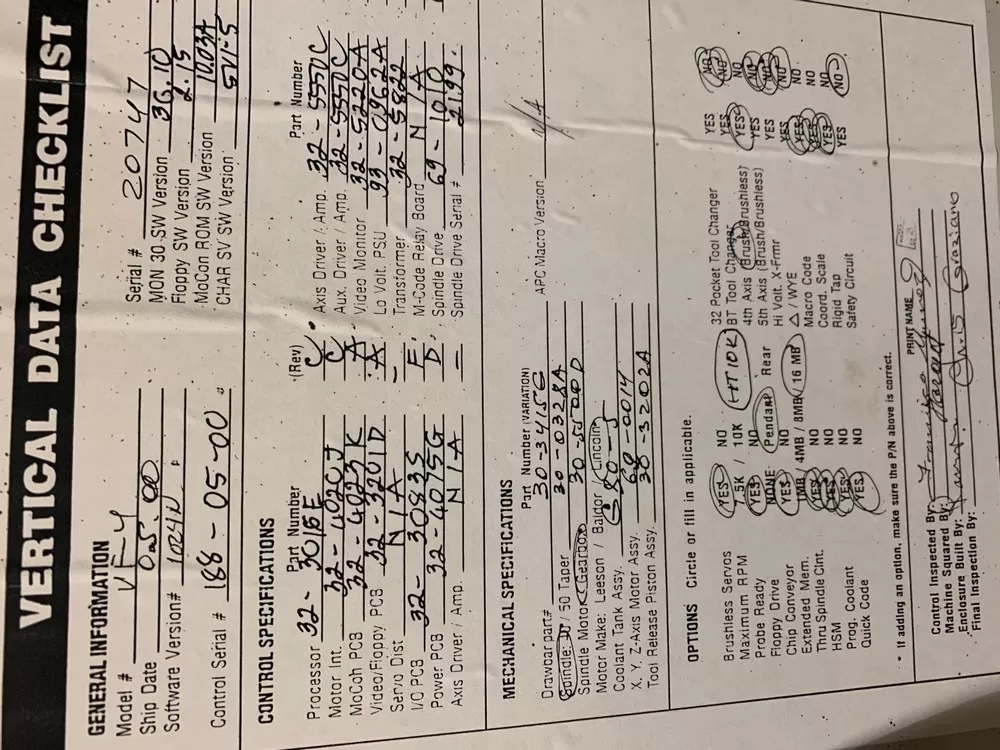 VERTICAL DATA CHECKLIST
GENERAL INFORMATION
Model # VF-4
Ship Date 05.00
Software Version# 10.24N
Control Serial # 188-05-00
Serial # 20747
MON 30 SW Version 3G.10
Floppy SW Version 2.15
MoCon ROM SW Version 10.03A
CHAR SV SW Version SV1-5
CONTROL SPECIFICATIONS
Part Number (Rev)
Processor 32-3015E C
Motor Int. 32-4020J C
MoCon PCB 32-4023K A
Video/Floppy PCB 32-3201D A
Servo Dist N/A -
I/O PCB 32-3083S F
Power PCB 32-4075G D
Axis Driver / Amp. N/A -
Part Number
Axis Driver / Amp. 32-5550C
Aux. Driver / Amp. 32-5550C
Video Monitor 32-5220A
Lo Volt. PSU 93-0962A
Transformer 32-5822
M-Code Relay Board N/A
Spindle Drive 69-1010
Spindle Drive Serial # 2199.
MECHANICAL SPECIFICATIONS
Part Number (VARIATION)
Drawbar part# 30-3415G
Spindle: 30 / 50 Taper 30-0328A
Spindle Motor / Gearbox 30-5500D
Motor Make: Leeson / Baldor / Lincoln
Coolant Tank Assy. S80-5
X, Y, Z-Axis Motor Assy. 60-0014
Tool Release Piston Assy. 30-3202A
APC Macro Version N/A
OPTIONS Circle or fill in applicable.
Brushless Servos YES NO
Maximum RPM 5K / 10K HT10K
Probe Ready YES NO
Floppy Drive NONE Pendant Rear
Chip Conveyor YES NO
Extended Mem. 1MB / 4MB / 8MB / 16 MB
Thru Spindle Clnt. YES NO
HSM YES NO
Prog. Coolant YES NO
Quick Code YES NO
32 Pocket Tool Changer YES NO
BT Tool Changer YES NO
4th Axis (Brush/Brushless) YES NO
5th Axis (Brush/Brushless) YES NO
Hi Volt. X-Frmr YES NO
Δ / WYE YES NO
Macro Code YES NO
Coord. Scale YES NO
Rigid Tap YES NO
Safety Circuit YES NO
* If adding an option, make sure the P/N above is correct.
PRINT NAME
Control Inspected By:
Machine Squared By:
Enclosure Built By:
Final Inspection By: Chris Graziano